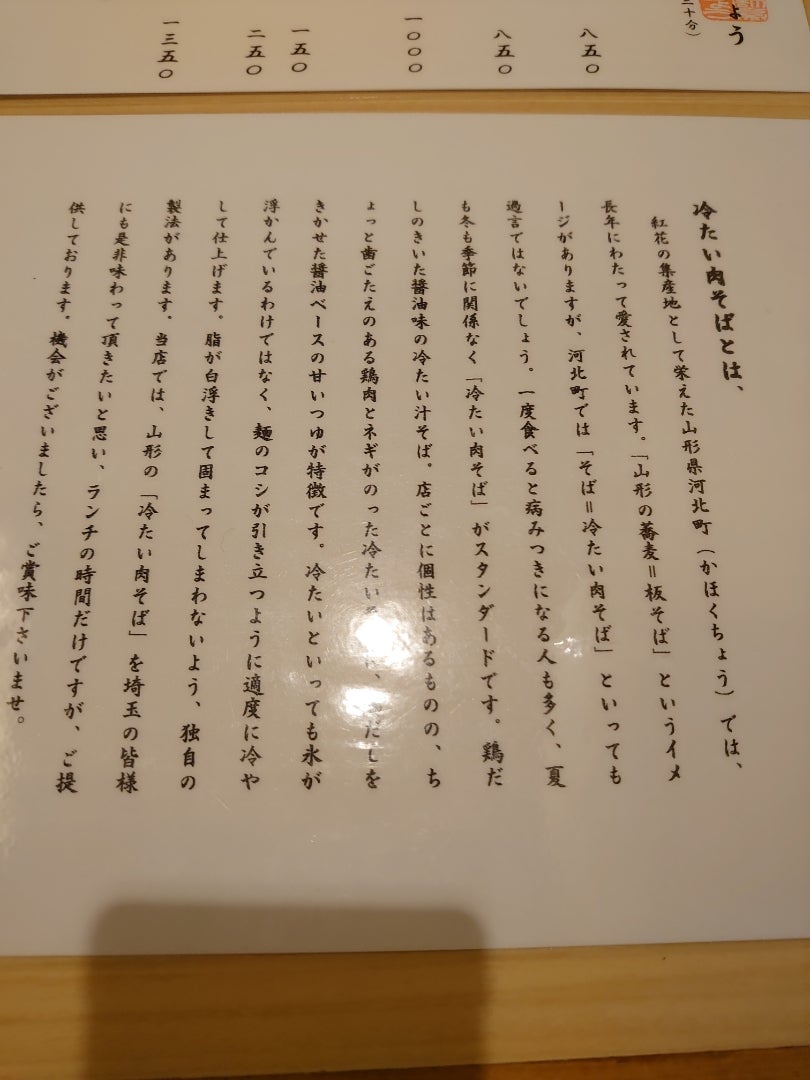 ょう
三十分）
八五〇
八五〇
一〇〇〇
一五〇
二五〇
一三五〇
冷たい肉そばとは、
紅花の集産地として栄えた山形県河北町（かほくちょう）では、
長年にわたって愛されています。「山形の蕎麦＝板そば」というイメ
ージがありますが、河北町では「そば＝冷たい肉そば」といっても
過言ではないでしょう。一度食べると病みつきになる人も多く、夏
も冬も季節に関係なく「冷たい肉そば」がスタンダードです。鶏だ
しのきいた醤油味の冷たい汁そば。店ごとに個性はあるものの、ち
ょっと歯ごたえのある鶏肉とネギがのった冷たい、だしを
きかせた醤油ベースの甘いつゆが特徴です。冷たいといっても氷が
浮かんでいるわけではなく、麺のコシが引き立つように適度に冷や
して仕上げます。脂が白浮きして固まってしまわないよう、独自の
製法があります。当店では、山形の「冷たい肉そば」を埼玉の皆様
にも是非味わって頂きたいと思い、ランチの時間だけですが、ご提
供しております。機会がございましたら、ご賞味下さいませ。